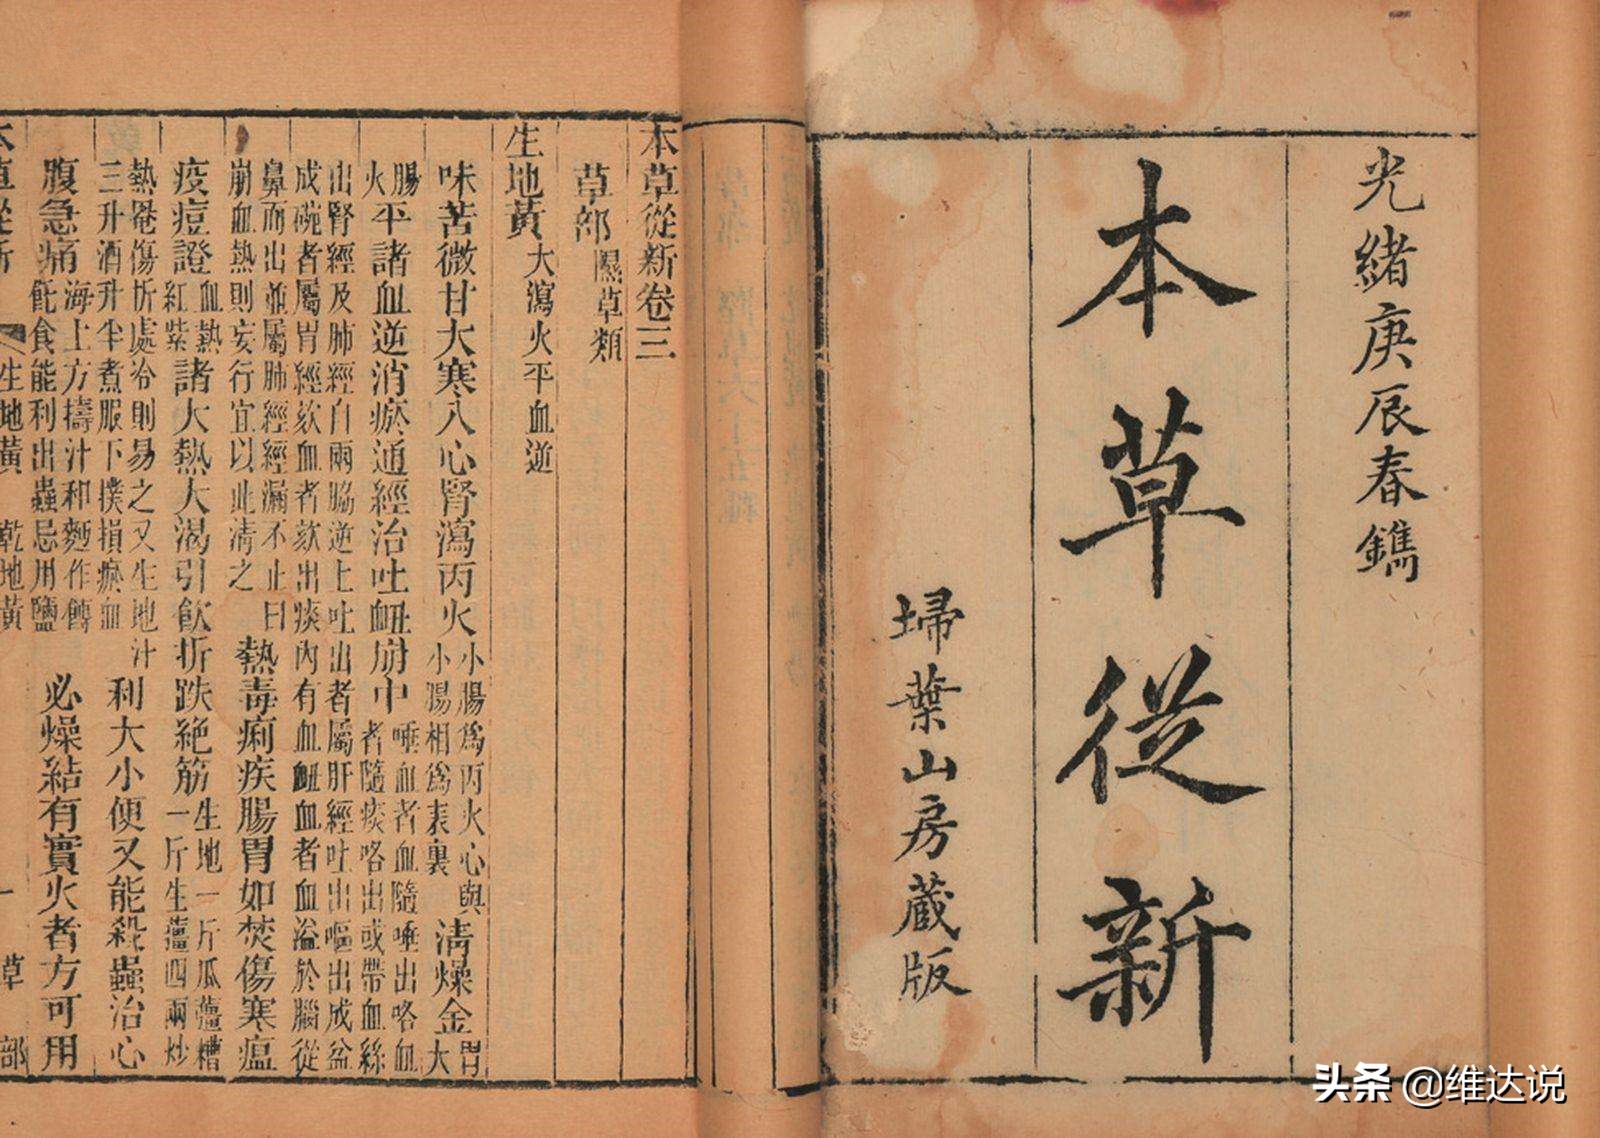 光緒庚辰春鐫
本草從新
埽葉山房藏版
本草從新卷三
草部 隰草類
生地黃 大瀉火平血逆
味苦微甘大寒入心腎瀉丙火 小腸為丙火心與小腸相為表裏 清燥金 胃大
腸 火 平諸血逆消瘀通經治吐衄崩中 唾血者血隨唾出咯血者隨痰咯出或帶血絲
出腎經及肺經自兩脇逆上吐出者屬肝經吐出嘔出成盆
成碗者屬胃經欬血者欬出痰內有血衄血者血溢於腦從
鼻而出並屬肺經經漏不止曰
崩血熱則妄行宜以此清之 熱毒痢疾腸胃如焚傷寒瘟
疫痘證 血熱紅紫 諸大熱大渴引飲折跌絕筋 生地一斤瓜薑糟一斤生薑四兩炒
熱罨傷折處冷則易之又生地汁
三升酒升半煮服下撲損瘀血 利大小便又能殺蟲治心
腹急痛 海上方擣汁和麪作餺飥食能利出蟲忌用鹽 必燥結有實火者方可用
本草從新 生地黃 乾地黃 一 草部
头条 @维达说